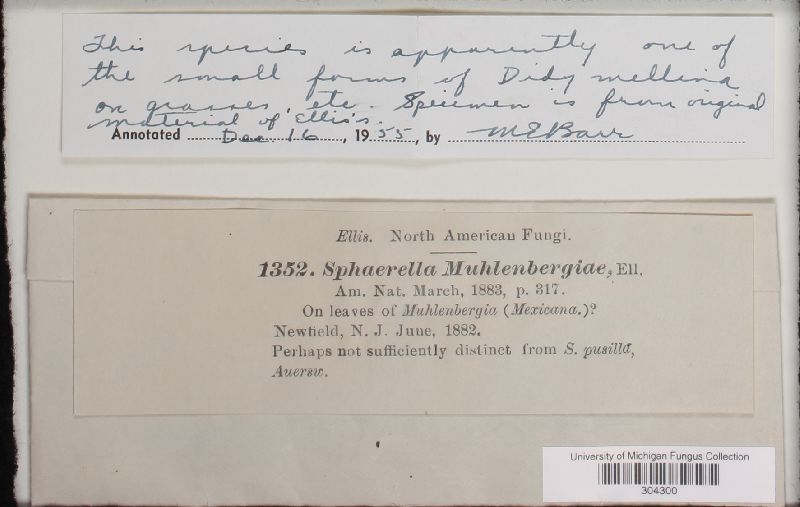 This species is apparently one of
the small forms of Didymellina
on grasses, etc. Specimen is from original
material of Ellis's.
Annotated Dec. 16, 1955, by MEBarr
Ellis. North American Fungi.
1352. Sphaerella Muhlenbergiae, Ell.
Am. Nat. March, 1883, p. 317.
On leaves of Muhlenbergia (Mexicana.)?
Newfield, N. J. June, 1882.
Perhaps not sufficiently distinct from S. pusilla,
Auersw.
University of Michigan Fungus Collection
304300